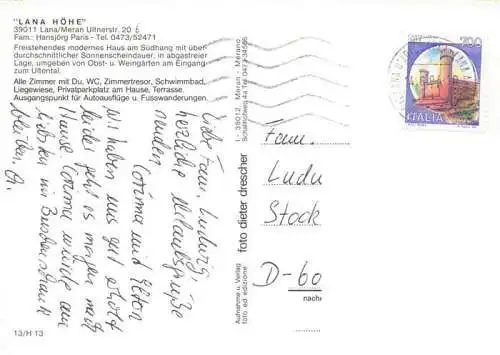 "LANA HÖHE"
39011 Lana/Meran Ullnerstr. 20
Fam.: Hansjörg Paris - Tel. 0473/52471
Freistehendes modernes Haus am Südhang mit über-
durchschnittlicher Sonnenscheindauer, in abgasfreier
Lage, umgeben von Obst- u. Weingärten am Eingang
zum Ultental.
Alle Zimmer mit Du, WC, Zimmertresor, Schwimmbad,
Liegewiese, Privatparkplatz am Hause, Terrasse.
Ausgangspunkt für Autoausflüge u. Fusswanderungen.
Liebe Fam. Ludwig,
herzliche Urlaubsgrüße
senden
Corinna mit Eltern
wir haben uns gut erholt
leider geht es morgen nach
Hause. Corinna würde am
liebsten im
bleiben.
13/H 13
Aufnahme u. Verlag
foto ed edizione
foto dieter drescher
I - 39012 Meran - Merano
700
ITALIA
Fam.
Ludu
Stock
D-60
nache